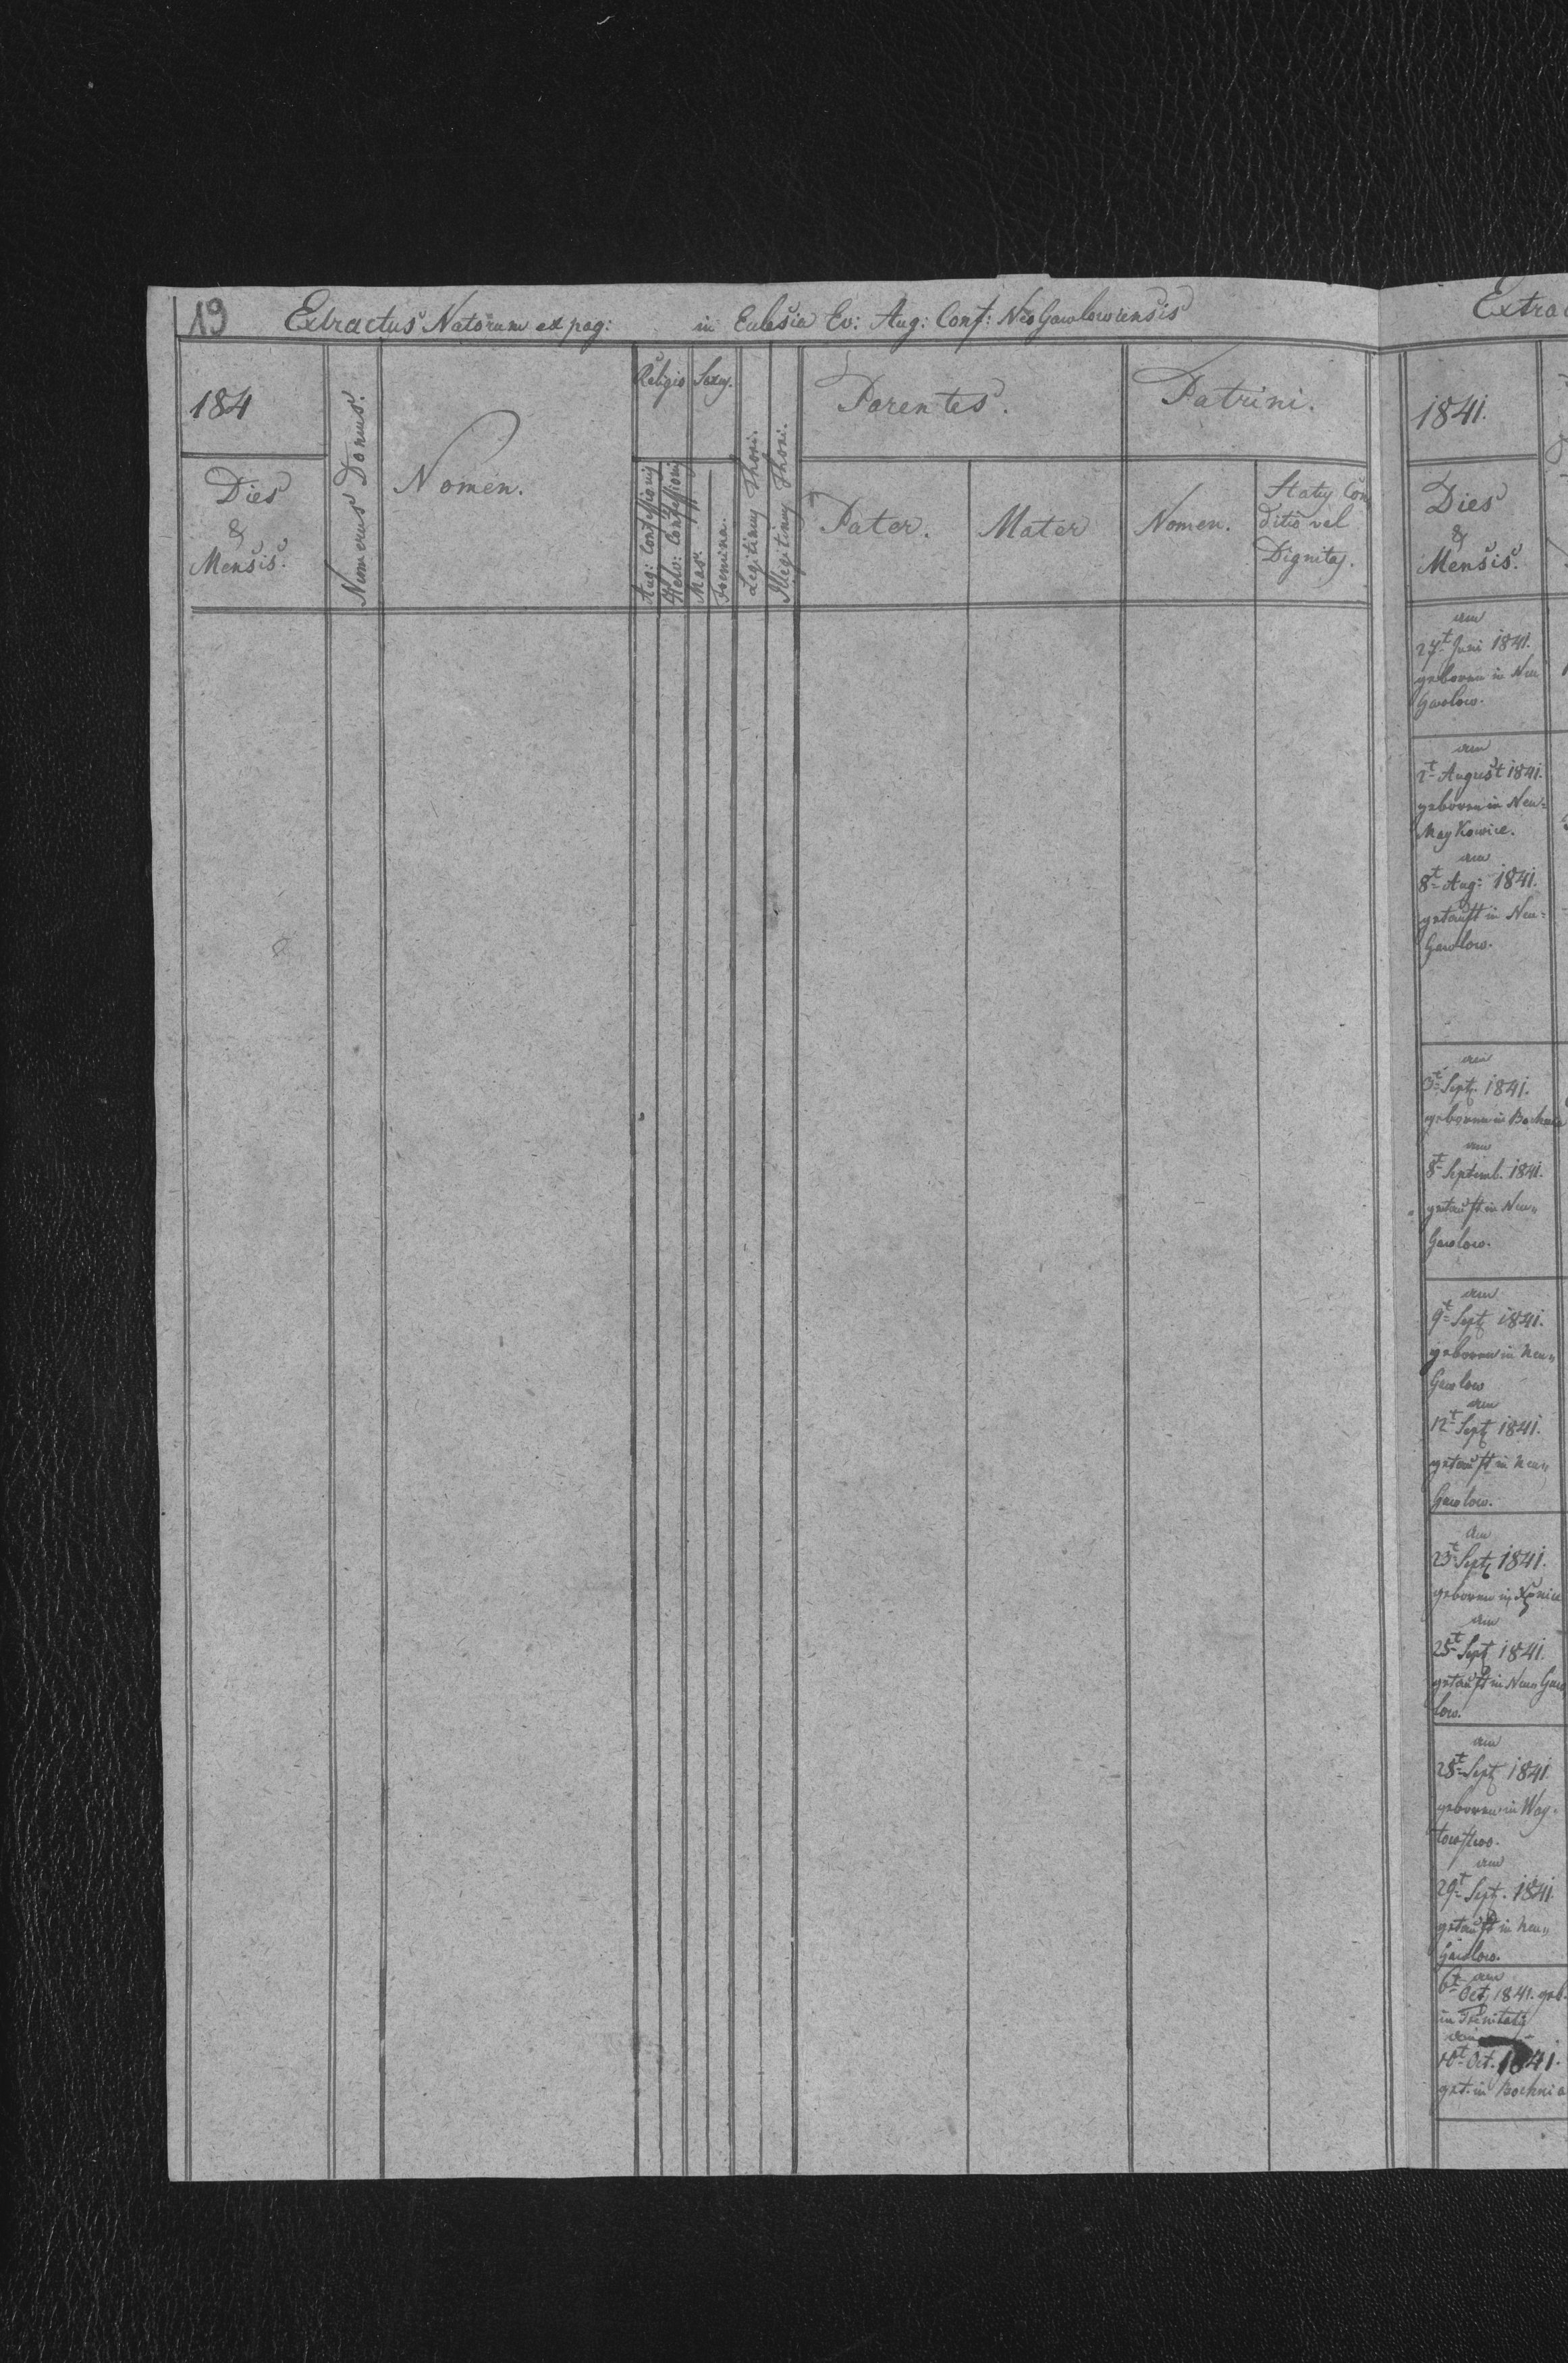 19 Extractus Natorum ex pag: in Eclesia Ev: Aug: Conf: NeoGawlowiensis
184
Dies
&
Mensis.
Numerus Domus.
Nomen.
Religio
Aug: Confessionis
Helv: Confessionis
Sexus.
Mas.
Foemina.
Legitimus Thori.
Illegitimus Thori.
Parentes.
Pater.
Mater
Patrini.
Nomen.
Status Con
ditio vel
Dignitas.
1841.
Dies
&
Mensis.
am
27t Juni 1841.
geboren in Neu
Gawlow.
am
August 1841.
geboren in Neu=
MayKowice.
am
8t Aug: 1841.
getauft in Neu=
Gawlow.
am
Sept. 1841.
geboren in Bochnia
am
8t Septemb. 1841.
getauft in Neu„
Gawlow.
am
9t Sept 1841.
geboren in Neu„
Gawlow
am
12t Sept 1841.
getauft in Neu„
Gawlow.
am
23t Sept 1841.
geboren in
am
25t Sept 1841.
getauft in Neu„ Gaw
low.
am
28t Sept 1841
geboren in Woy-
towstwo.
am
29t Sept. 1841
getauft in Neu„
Gawlow.
am
6t Oct 1841. geb.
in Trinitatis
am
10t Oct. 1841.
get. in Bochnia